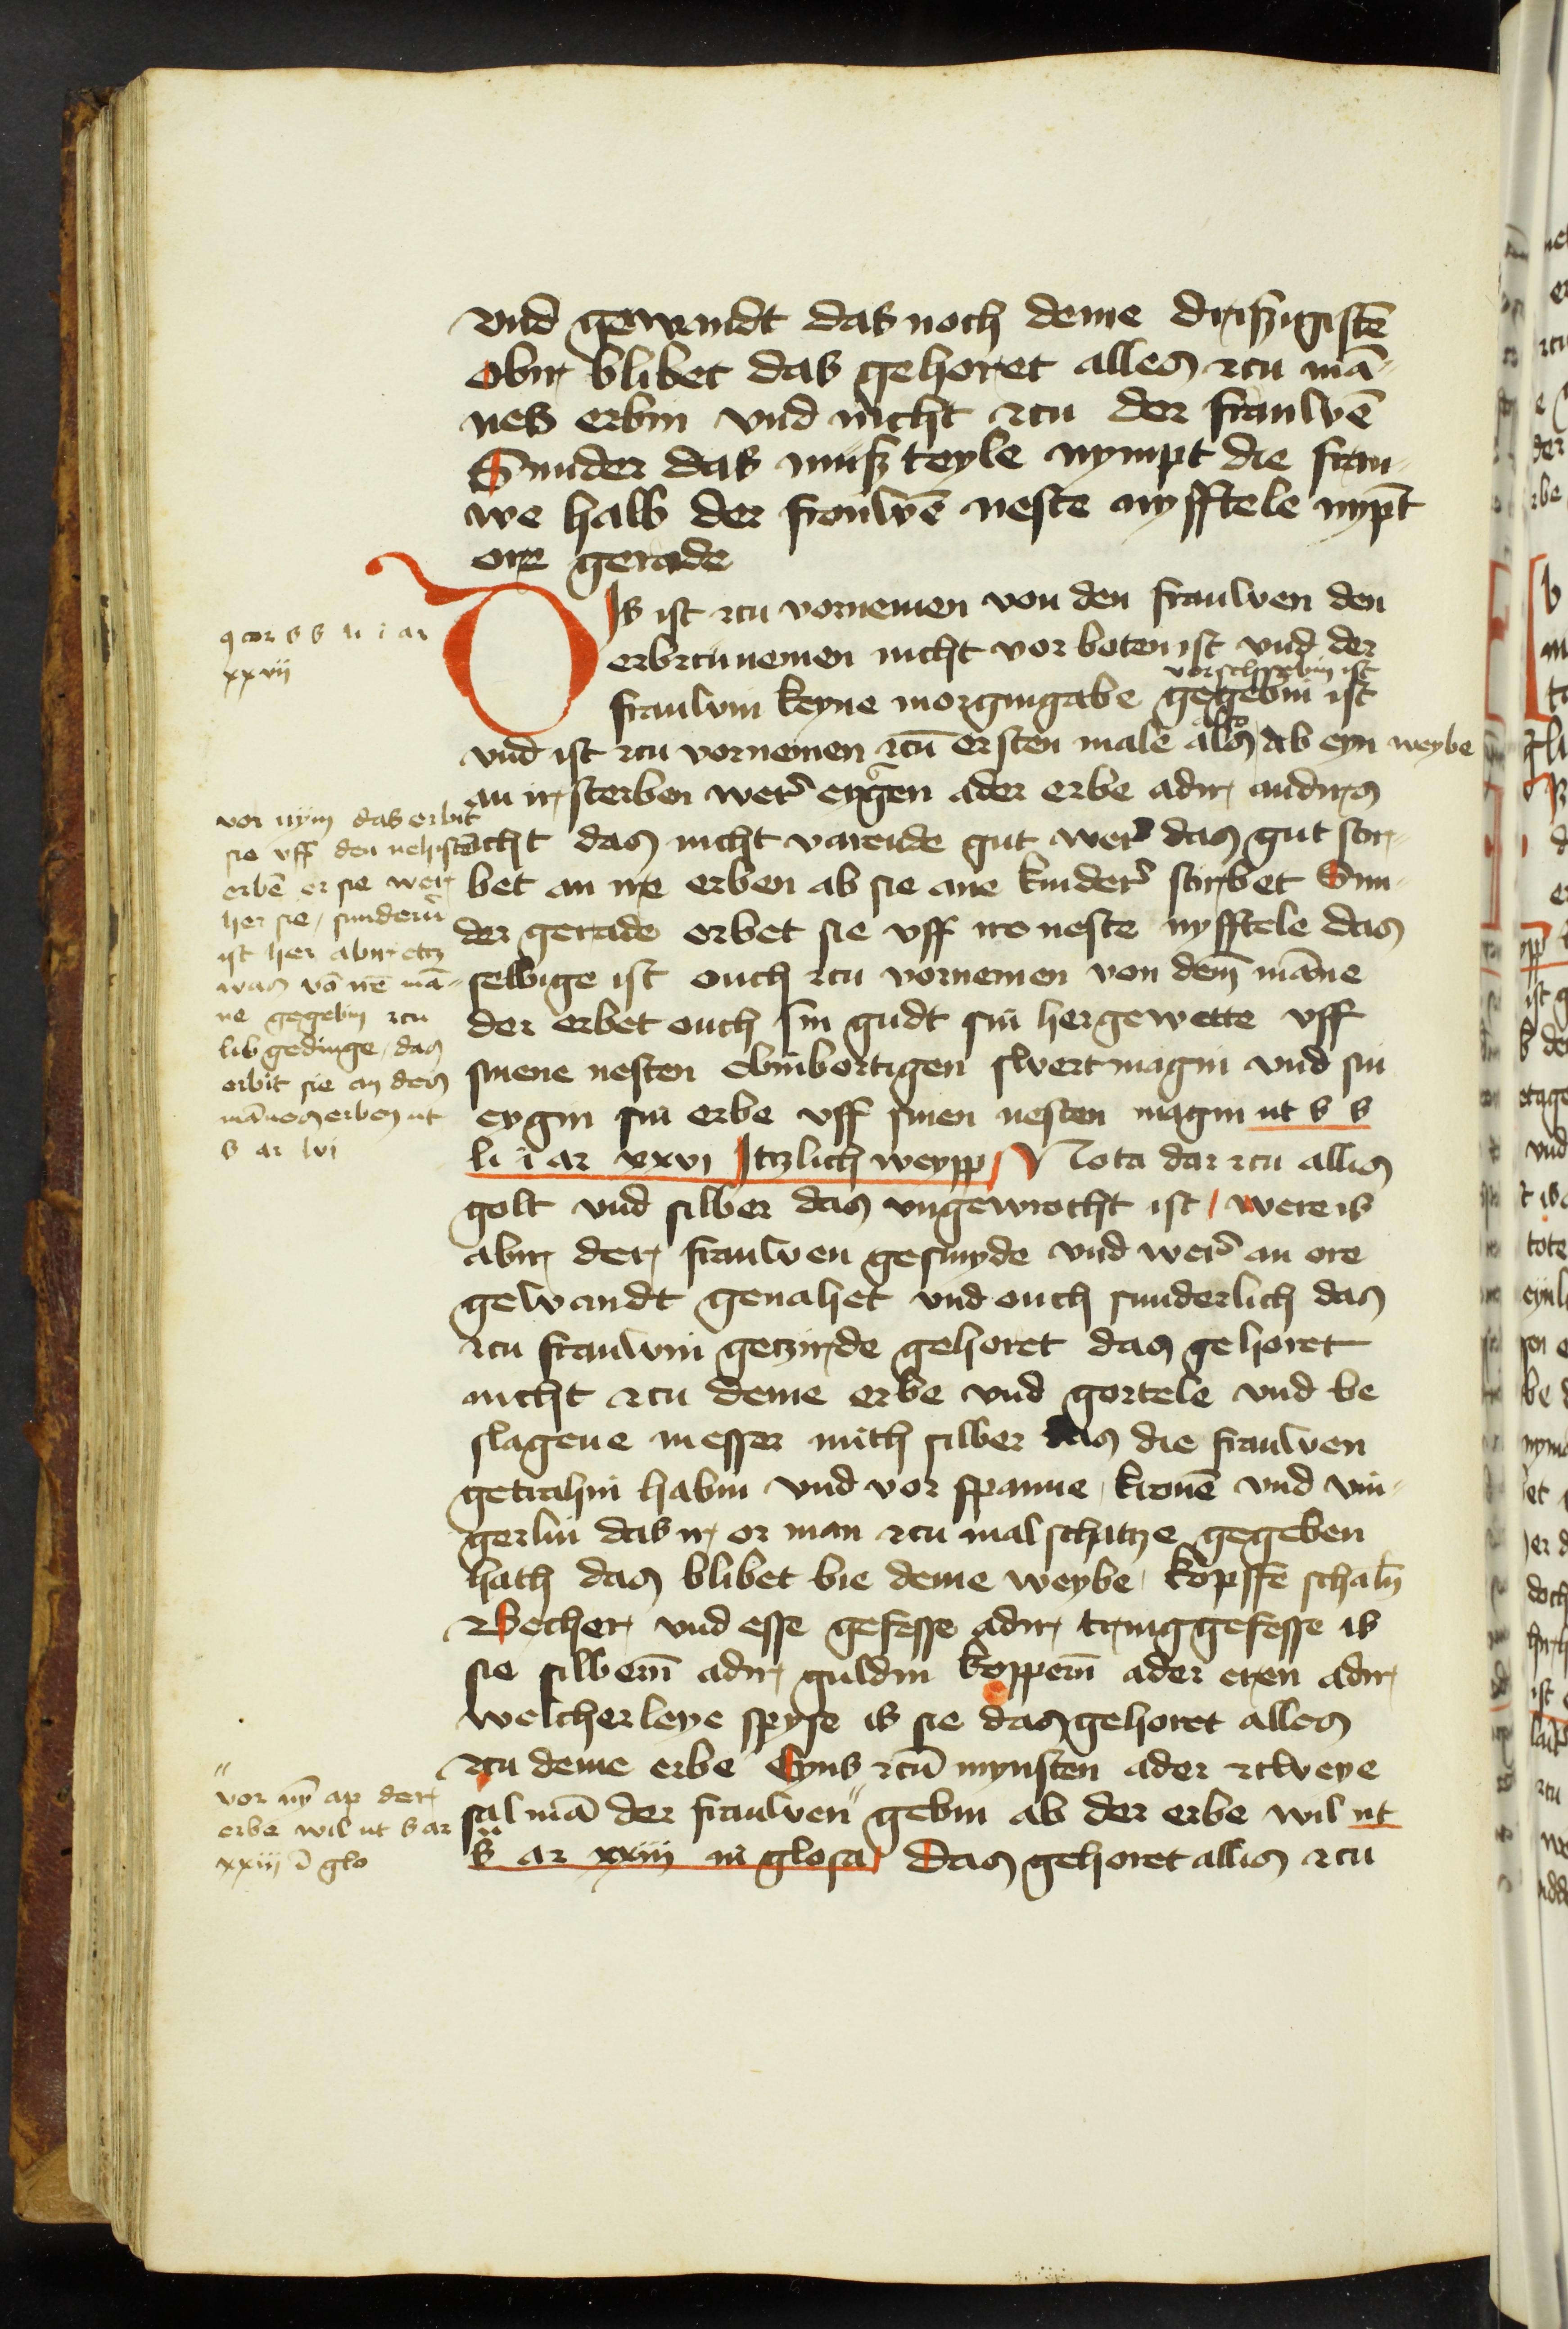 vnd gewandt das noch deme drißigistē
obir blibet das gehoret alles zcu mā-
nes erbin vnd nicht zcu der frauwē
Sunder das muß teyle nympt die frau-
we halb der frouwē neste nyfftele nypt
ore gerade
Dis ist zcu vornemen von den frauwen den
erbzcunemen nicht vor boten ist vnd der
vorschrebin ist
frauwin keyne morgingabe gegebin ist
also
vnd ist zcu vornemen zcū ersten male als ab eyn weybe
an ir sterben wer eygen ader erbe adir andirs
icht das nicht varende gut wer das gut stir-
bet an ire erben ab sie ane kinder stirbet Sun-
der gerade erbet sie vff ire neste nyfftele das
selbige ist ouch zcu vornemen von dem māne
der erbet ouch sin gudt sin hergewette vff
sinene nesten ebinbortigen swertmagin vnd sin
eygin sin erbe vff sinen nesten magin ut s s
li i ar xxvi Itzlich weypp Nota dar zcu allis
golt vnd silber das vngewrocht ist / were is
abir der frauwen gesmyde vnd wer an ore
gewandt genahet vnd ouch sunderlich das
zcu frauwin gezcirde gehoret das gehoret
nicht zcu deme erbe vnd gortele vnd be
slagene messer mith silber das die frauwen
getrahin habin vnd vor spanne kronē vnd vin-
gerlin das ir or man zcu malschatze gegeben
hath das blibet bie deme weybe kopffe schaln
Becher vnd esse gefesse adir tringgefesse is
sie silbern adir guldin koppern ader eren adir
welcherleye spyse is sie das gehoret alles
zcu deme erbe Eyns zcū mynsten ader zcweye
sal mā der frauwen gebin ab der erbe wil ut
s ar xxiii in glosa Das gehoret allis zcu
xxvii
vor nym das erbit
sie vff den nehistē
erbē er sie wer
her sie / sundern
ist her abir etz
was vō irē mā-
ne gegebin zcu
lib gedinge / das
erbit sie an des
mānes erben ut
s ar lvi
vor nȳ ap der
erbe wil ut s ar
xxiii ī glo